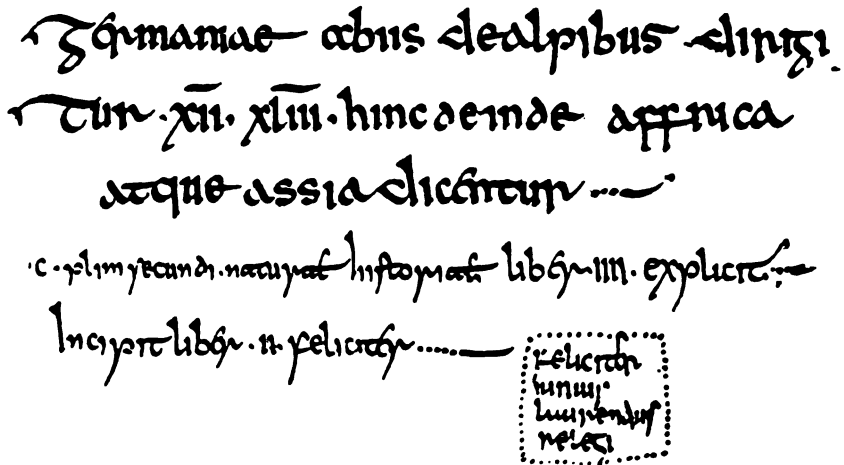 germaniae abiis dealpibus dirigi
tur · x̅i̅i̅ · x̅l̅i̅i̅i̅ · hinc deinde affrica
atque assia dicentur
· c · plini secundi · naturał historiał liber · IIII · explicit
Incipit liber · II · feliciter
feliciter
iunius
laurentius
relegi